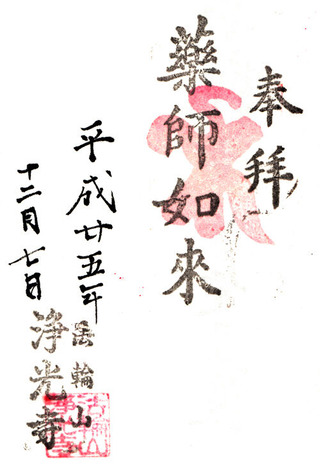 奉拜
藥師如來
平成廿五年
十二月七日
法輪山
浄光寺